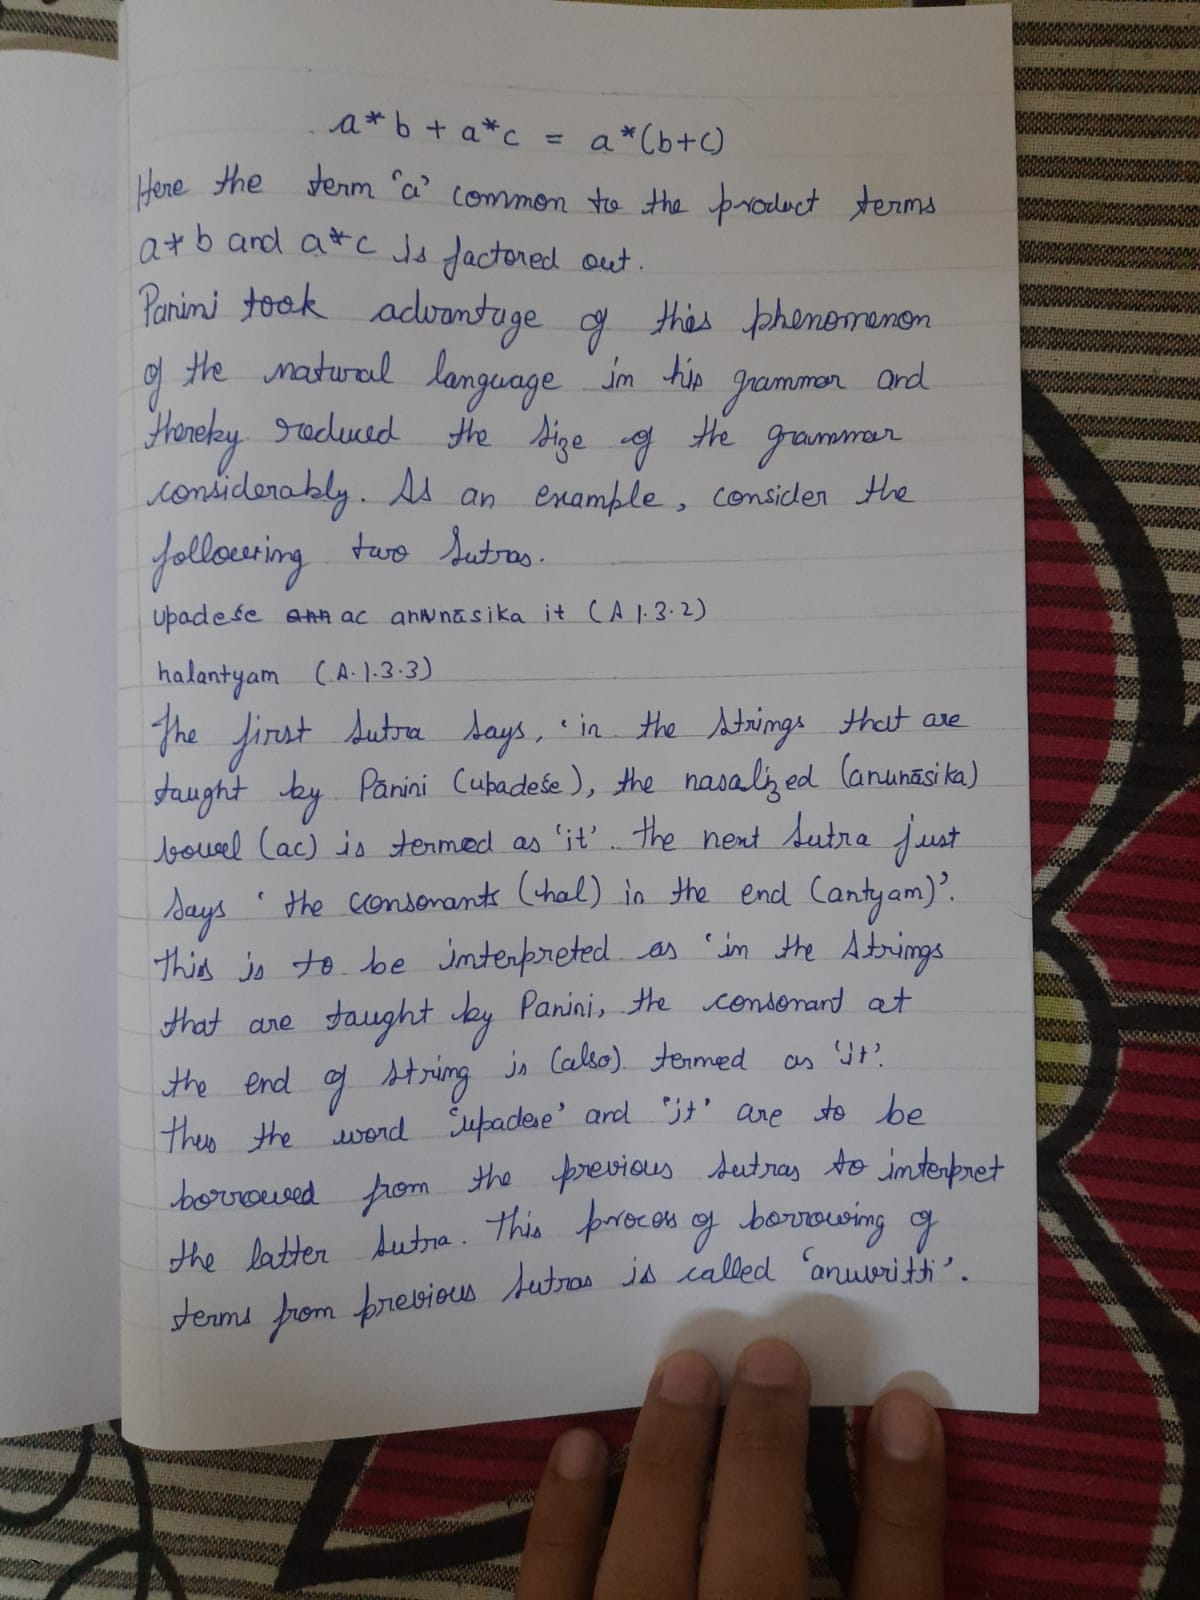 a*b + a*c = a*(b+c)
Here the term 'a' common to the product terms
a*b and a*c is factored out.
Panini took advantage of this phenomenon
of the natural language in his grammar and
thereby reduced the size of the grammar
considerably. As an example, consider the
following two sutras.
upadeśe ac anunāsika it (A 1.3.2)
halantyam (A.1.3.3)
The first sutra says, 'in the strings that are
taught by Pānini (upadeśe), the nasalized (anunāsika)
vowel (ac) is termed as 'it'. the next sutra just
says 'the consonants (hal) in the end (antyam)'.
this is to be interpreted as 'in the strings
that are taught by Panini, the consonant at
the end of string is (also) termed as 'it'.
thus the word 'upadese' and 'it' are to be
borrowed from the previous sutras to interpret
the latter sutra. This process of borrowing of
terms from previous sutras is called 'anuvritti'.